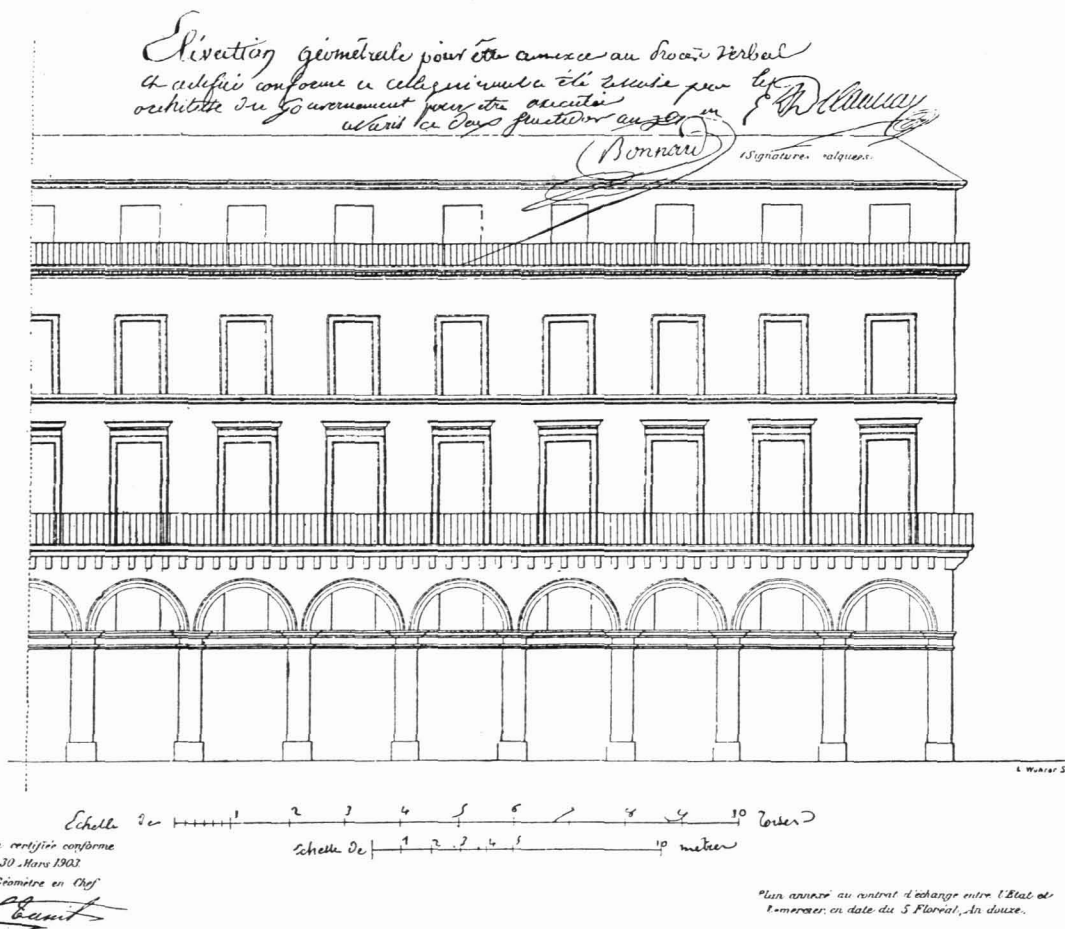 Elévation géométrale pour être annexée au Procès Verbal
et certifiée conforme a celle qui nous a été remise par les
architecte du Gouvernement pour être executée
a Paris ce Fructidor an
Bonnard
(Signatures calquées.
L. Wuhrer S
Echelle de 1 2 3 4 5 6 7 8 9 10 Toises
Echelle de 1 2 3 4 5 10 metres
certifiée conforme
30 Mars 1903.
Géomètre en Chef
Plan annexé au contrat d'échange entre l'Etat et
Lemercier, en date du 5 Floréal, An douze.